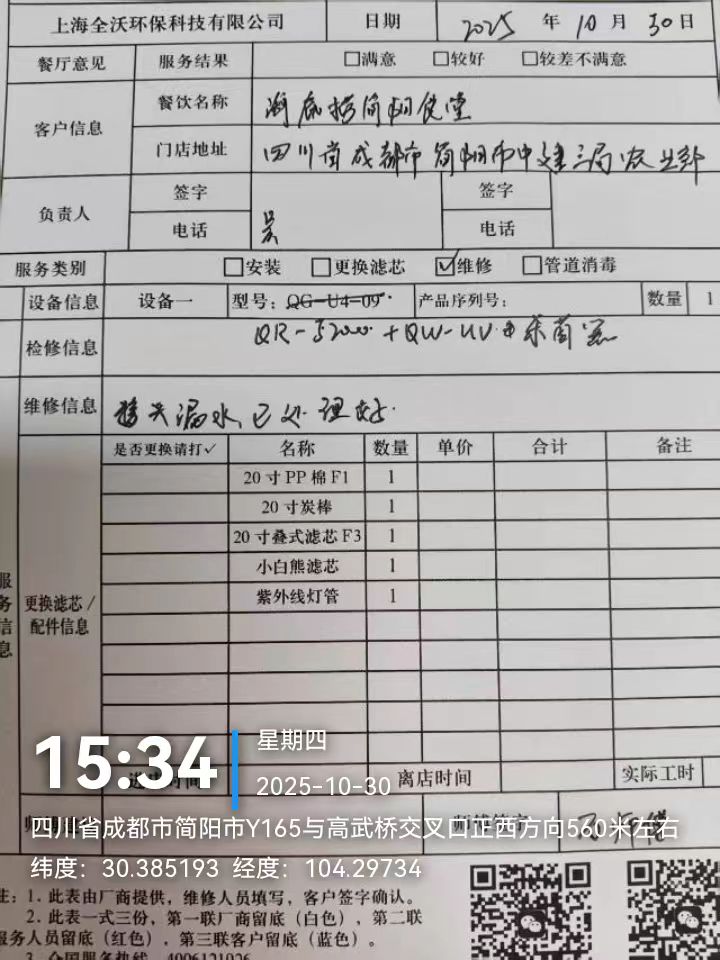 上海全沃环保科技有限公司 日期 2025 年 10 月 30 日
餐厅意见 服务结果 □满意 □较好 □较差不满意
客户信息 餐饮名称 海底捞简阳食堂
门店地址 四川省成都市简阳市中建三局农业部
负责人 签字 吴 签字
电话 电话
服务类别 □安装 □更换滤芯 ☑维修 □管道消毒
设备信息 设备一 型号：QG-U4-09 产品序列号： 数量 1
检修信息 QR-52000+QW-UV 杀菌器
维修信息 接头漏水，已处理好.
是否更换请打✓ 名称 数量 单价 合计 备注
20寸PP棉F1 1
20寸炭棒 1
20寸叠式滤芯F3 1
小白熊滤芯 1
紫外线灯管 1
服务信息 更换滤芯/
配件信息
15:34
星期四
2025-10-30
离店时间 实际工时
四川省成都市简阳市Y165与高武桥交叉口正西方向560米左右
纬度：30.385193 经度：104.29734
注：1. 此表由厂商提供，维修人员填写，客户签字确认。
2. 此表一式三份，第一联厂商留底（白色），第二联
服务人员留底（红色），第三联客户留底（蓝色）。
3. 全国服务热线 4006121026